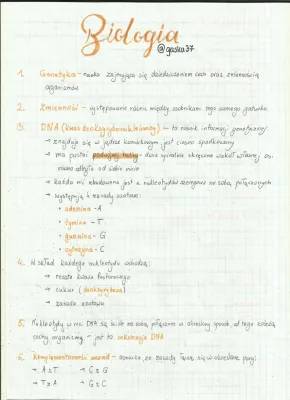 Biologia
@gaska37
1. Genetyka - nauka zajmująca się dziedziczeniem cech oraz zmiennością
organizmów
2. Zmienność - występowanie różnic między osobnikami tego samego gatunku.
3. DNA (kwas deoksyrybonukleinowy) - to nośnik informacji genetycznej
- znajduje się w jądrze komórkowym jest ciasno upakowany
→ ma postać podwójnej helisy - dwie spiralnie skręcone wokół własnej osi
→ każda nić zbudowana jest z nukleotydów szeregowo ze sobą połączonych
→ występują 4 zasady azotowe:
→ adenina - A
→ tymina - T
→ guanina - G
→ cytozyna - C
4. W skład każdego nukleotydu wchodzą:
→ reszta kwasu fosforowego
→ cukier (deoksyryboza)
→ zasada azotowa
5. Nukleotydy w nici DNA są ściśle ze sobą połączone w określony sposób, od tego zależą
cechy organizmu - jest to sekwencja DNA
6. Komplementarność zasad - oznacza, że zasady łączą się w określone pary:
→ A≡T → C≡G
→ T≡A → G≡C